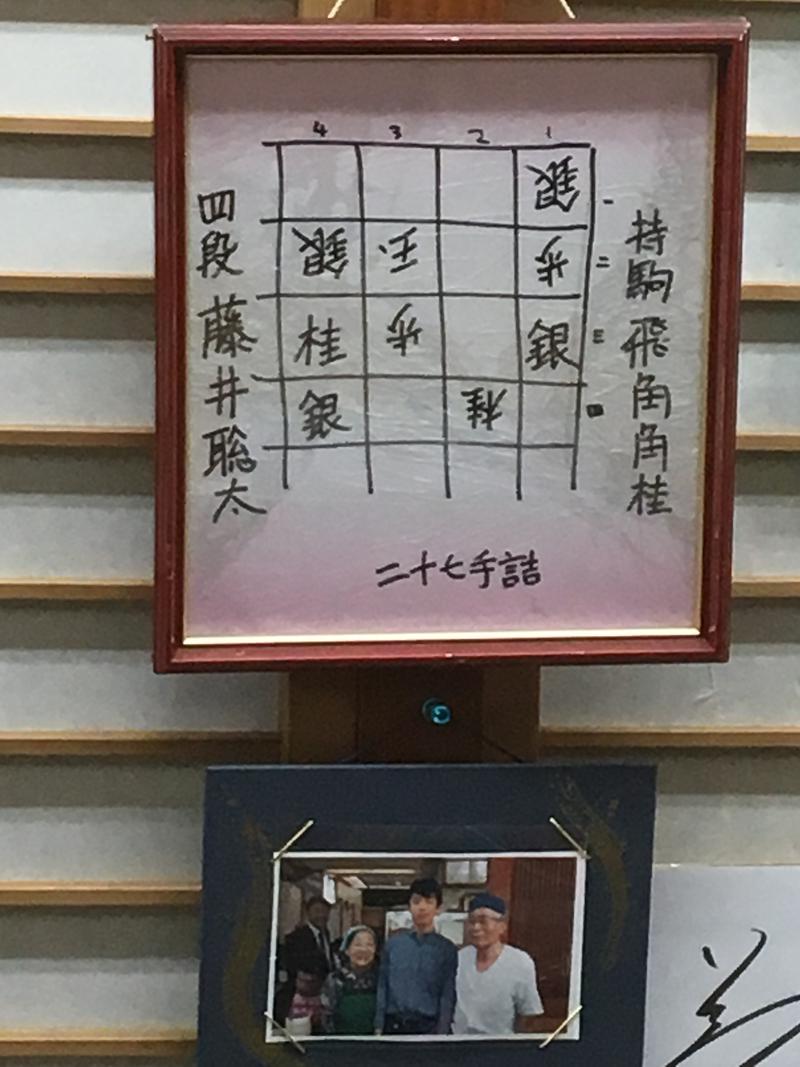 持駒 飛角角桂
4 3 2 1
銀 一
銀 玉 歩 二
桂 歩 銀 三
銀 桂 四
四段 藤井聡太
二十七手詰